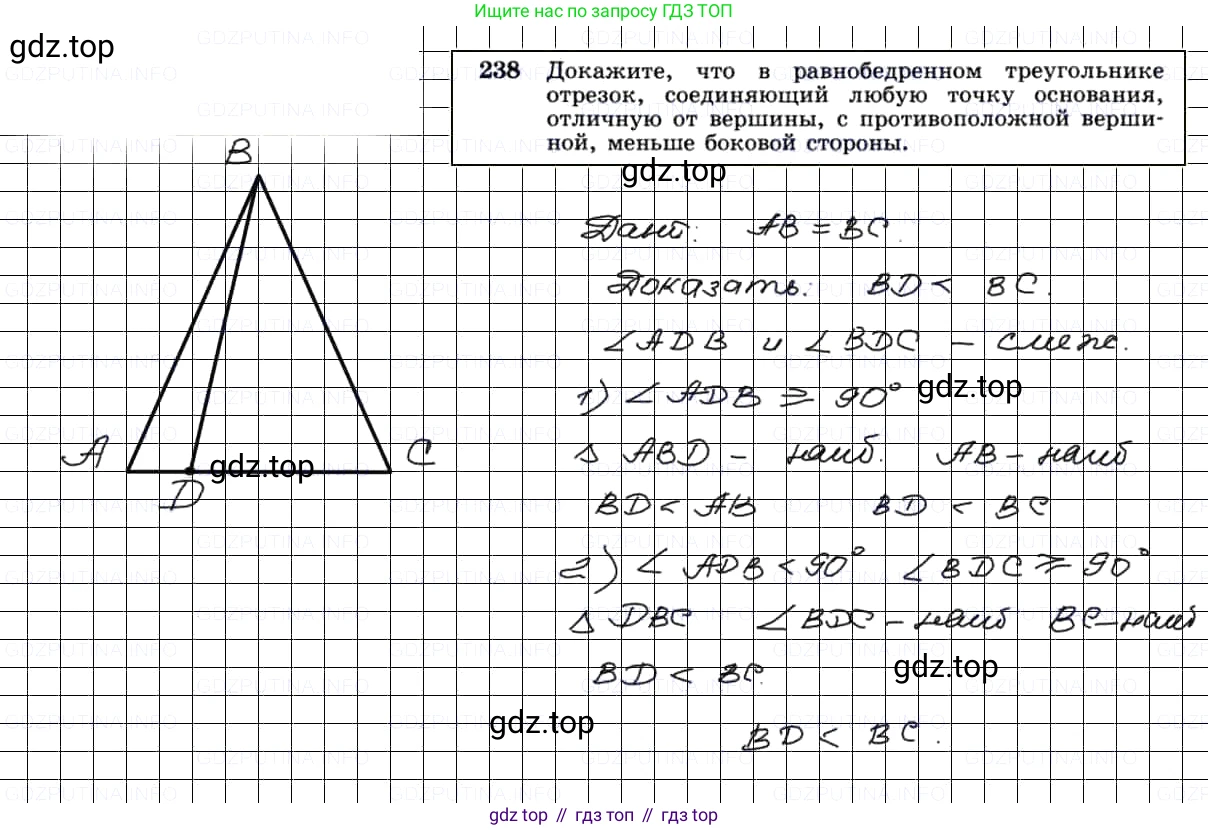 Ищите нас по запросу ГДЗ ТОП
gdz.top
238 Докажите, что в равнобедренном треугольнике
отрезок, соединяющий любую точку основания,
отличную от вершины, с противоположной верши-
ной, меньше боковой стороны.
gdz.top
B
Дано: AB = BC.
Доказать: BD < BC.
∠ADB и ∠BDC – смеж.
1) ∠ADB ⩾ 90°
gdz.top
△ ABD – наиб. AB – наиб
A
C
gdz.top
D
BD < AB BD < BC
2) ∠ADB < 90° ∠BDC ⩾ 90°
△ DBC ∠BDC – наиб BC – наиб
BD < BC.
gdz.top
gdz.top
BD < BC.
gdz top // гдз топ // gdz top
GDZPUTINA.INFO